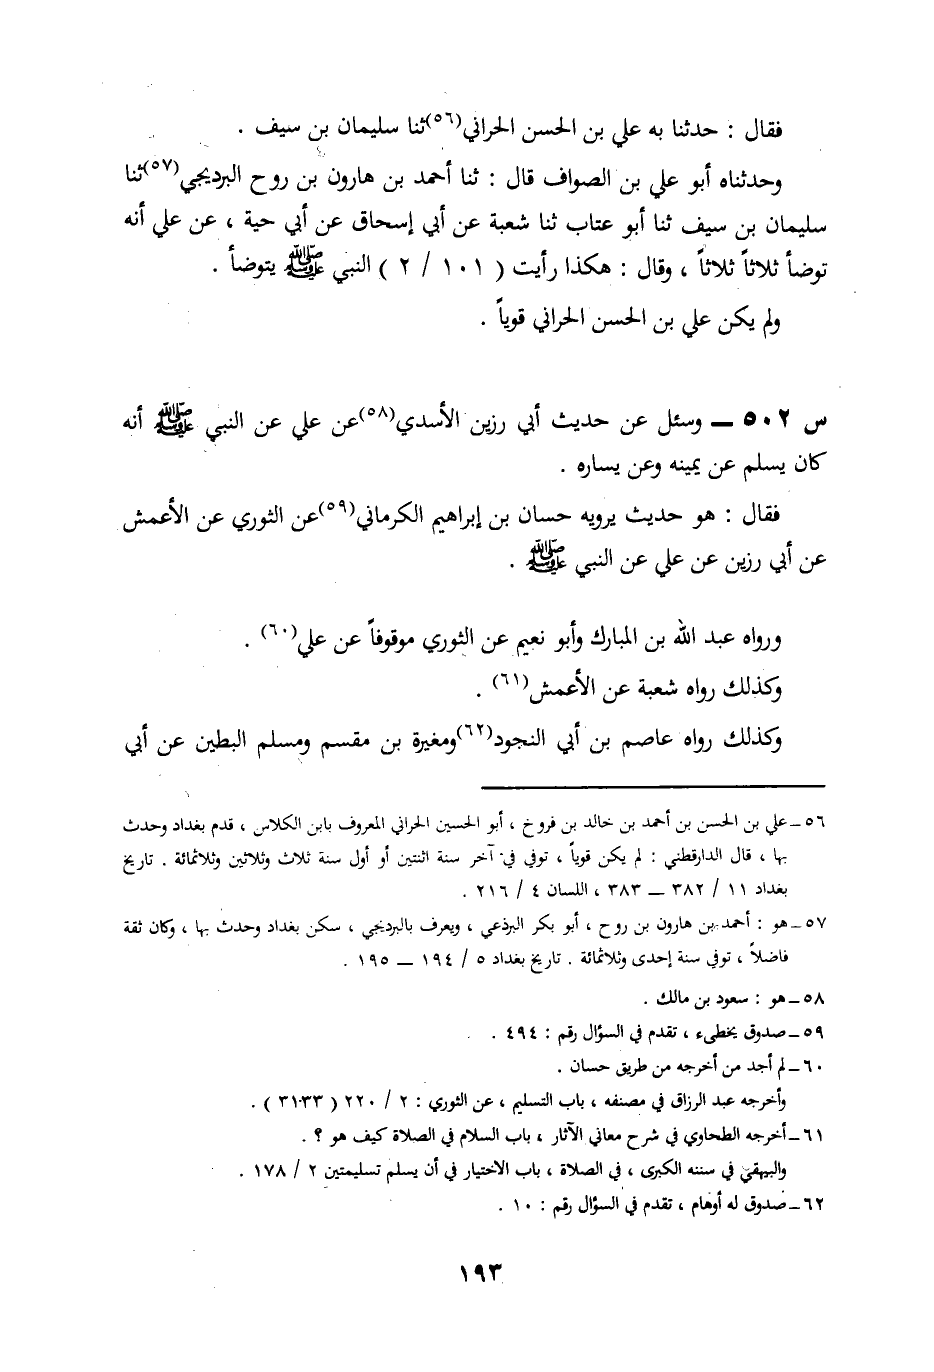 فقال : حدثنا به علي بن الحسن الحراني(٥٦)ثنا سليمان بن سيف .
وحدثناه أبو علي بن الصواف قال : ثنا أحمد بن هارون بن روح البرديجي(٥٧)ثنا
سليمان بن سيف ثنا أبو عتاب ثنا شعبة عن أبي إسحاق عن أبي حية ، عن علي أنه
توضأ ثلاثاً ثلاثاً ، وقال : هكذا رأيت ( ١٠١ / ٢ ) النبي ﷺ يتوضأ .
ولم يكن علي بن الحسن الحراني قوياً .
س ٥٠٢ ــ وسئل عن حديث أبي رزين الأسدي(٥٨)عن علي عن النبي ﷺ أنه
كان يسلم عن يمينه وعن يساره .
فقال : هو حديث يرويه حسان بن إبراهيم الكرماني(٥٩)عن الثوري عن الأعمش
عن أبي رزين عن علي عن النبي ﷺ .
ورواه عبد الله بن المبارك وأبو نعيم عن الثوري موقوفاً عن علي(٦٠) .
وكذلك رواه شعبة عن الأعمش(٦١) .
وكذلك رواه عاصم بن أبي النجود(٦٢)ومغيرة بن مقسم ومسلم البطين عن أبي
٥٦ــ علي بن الحسن بن أحمد بن خالد بن فروخ ، أبو الحسين الحراني المعروف بابن الكلاس ، قدم بغداد وحدث
بها ، قال الدارقطني : لم يكن قوياً ، توفي في آخر سنة اثنتين أو أول سنة ثلاث وثلاثين وثلاثمائة . تاريخ
بغداد ١١ / ٣٨٢ ــ ٣٨٣ ، اللسان ٤ / ٢١٦ .
٥٧ــ هو : أحمد بن هارون بن روح ، أبو بكر البرذعي ، ويعرف بالبرديجي ، سكن بغداد وحدث بها ، وكان ثقة
فاضلاً ، توفي سنة إحدى وثلاثمائة . تاريخ بغداد ٥ / ١٩٤ ــ ١٩٥ .
٥٨ــ هو : سعود بن مالك .
٥٩ــ صدوق يخطىء ، تقدم في السؤال رقم : ٤٩٤ .
٦٠ــ لم أجد من أخرجه من طريق حسان .
وأخرجه عبد الرزاق في مصنفه ، باب التسليم ، عن الثوري : ٢ / ٢٢٠ ( ٣١٣٣ ) .
٦١ــ أخرجه الطحاوي في شرح معاني الآثار ، باب السلام في الصلاة كيف هو ؟ .
والبيهقي في سننه الكبرى ، في الصلاة ، باب الاختيار في أن يسلم تسليمتين ٢ / ١٧٨ .
٦٢ــ صدوق له أوهام ، تقدم في السؤال رقم : ١٠ .
١٩٣